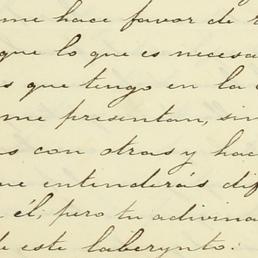 me hace favor de
que lo que es necesa
s que tengo en la
me presentan, sin
as con otras y hac
ue entenderás dif
él; pero tu adivina
e este laberynto.